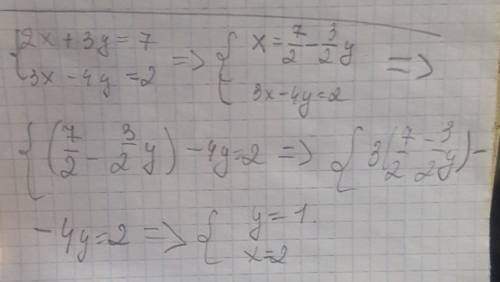 {2x + 3y = 7
3x - 4y = 2 => {x = 7/2 - 3/2 y
3x - 4y = 2 =>
{(7/2 - 3/2 y) - 4y = 2 => {3(7/2 - 3/2 y) -
- 4y = 2 => {y = 1.
x = 2